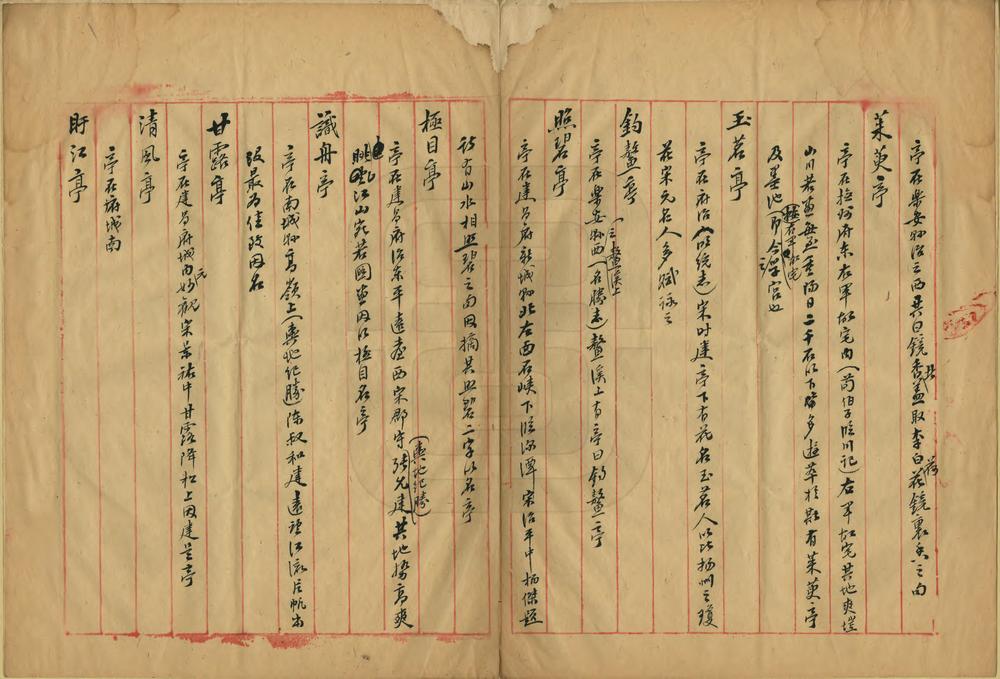 亭在樂安縣治之西其曰鏡香蓋取李白荷花鏡裏香之句
茱萸亭
亭在撫州府東右軍故宅內(荀伯子臨川記)右軍故宅其地爽塏
山川若畫每至重陽日二千石以下多遊萃於縣有茱萸亭
及墨池(即今學宮也
玉茗亭
亭在府治(以統志)宋時建亭下有花名玉茗人以比揚州之瓊
花宋元名人多賦詠之
釣鰲亭
亭在樂安縣西(名勝志)鰲溪上有亭曰釣鰲亭
(三鰲溪上
照碧亭
亭在建昌府新城縣北右西石峽下臨深潭宋治平中楊傑題
詩有山水相照碧之句因摘其照碧二字以名亭
極目亭
亭在建昌府治東平遠臺西宋郡守張允建(輿地紀勝)其地勢高爽
眺望江山宛若圖畫因以極目名亭
識舟亭
亭在南城縣高嶺上(輿地紀勝)陳叔和建遠望江流片帆出
沒最為佳致因名
甘露亭
亭在建昌府城內妙觀宋景祐中甘露降松上因建是亭
清風亭
亭在府城南
盱江亭